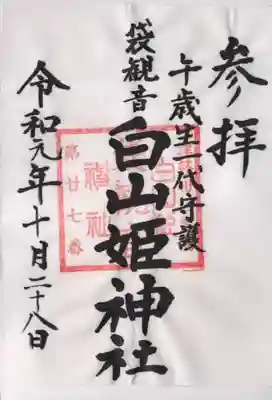 参拝
午歳生一代守護
袋観音
白山姫神社
令和元年十月二十八日
第廿七番